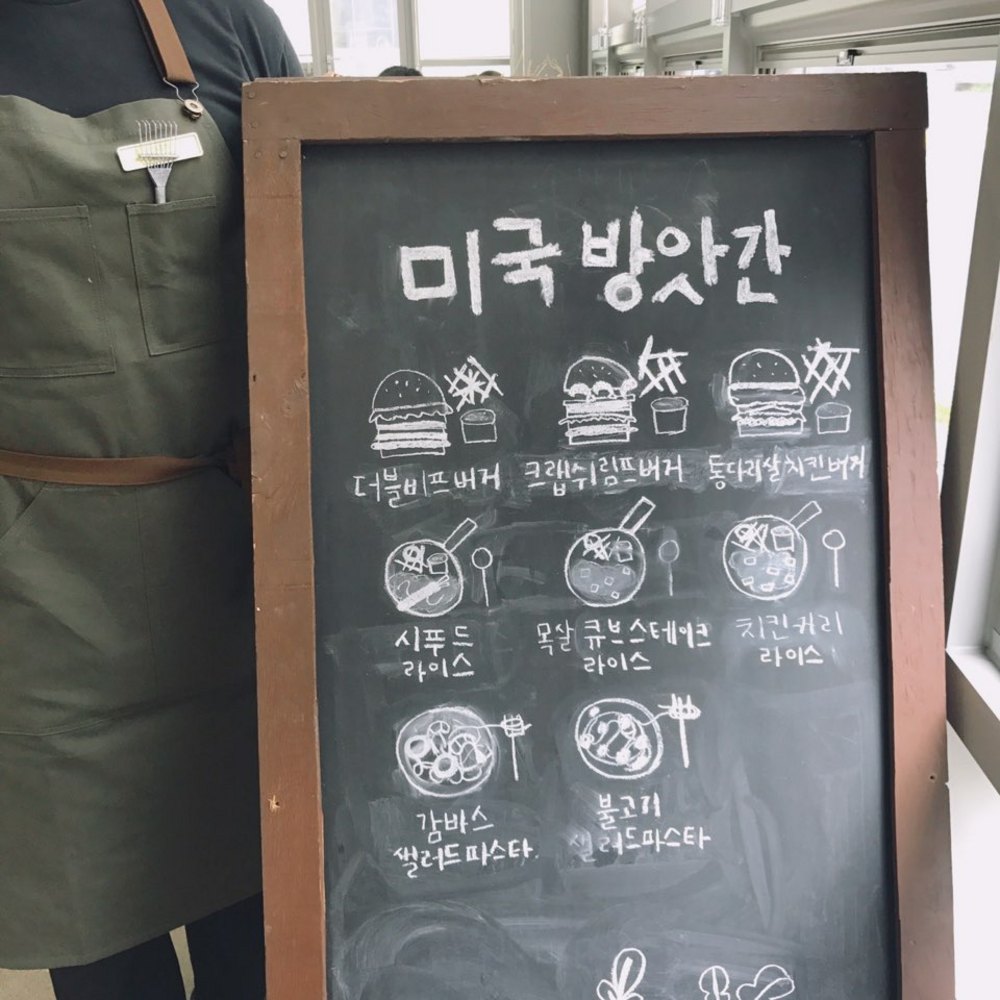 미국 방앗간
더블비프버거 크랩쉬림프버거 통다리살치킨버거
시푸드 목살 큐브스테이크 치킨커리
라이스 라이스 라이스
감바스 불고기
샐러드파스타 샐러드파스타